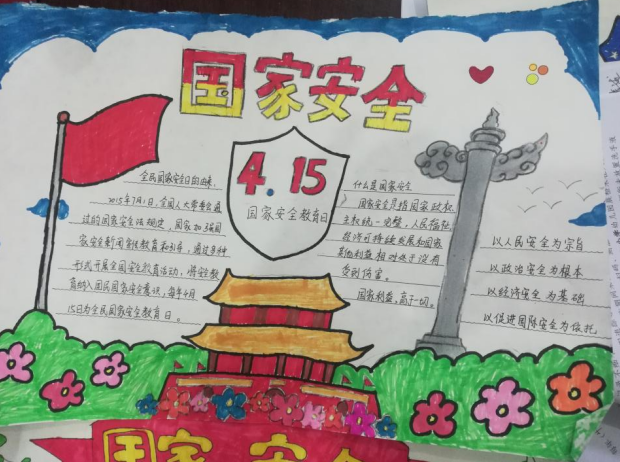 国家安全
4.15
国家安全教育日
全民国家安全日的由来.
2015年7月1日,全国人大常委会通
过的国家安全法规定,国家加强国
家安全新闻宣传教育和引导,通过多种
形式开展全国安全教育活动,将安全教
育纳入国民国家安全意识,每年4月
15日为全民国家安全教育日。
什么是国家安全
国家安全是指国家政权.
主权统一完整,人民福祉.
经济可持续发展和国家
其他利益相对处于没有
受到伤害。
国家利益,高于一切。
以人民安全为宗旨
以政治安全为根本
以经济安全为基础
以促进国际安全为依托
国家安全